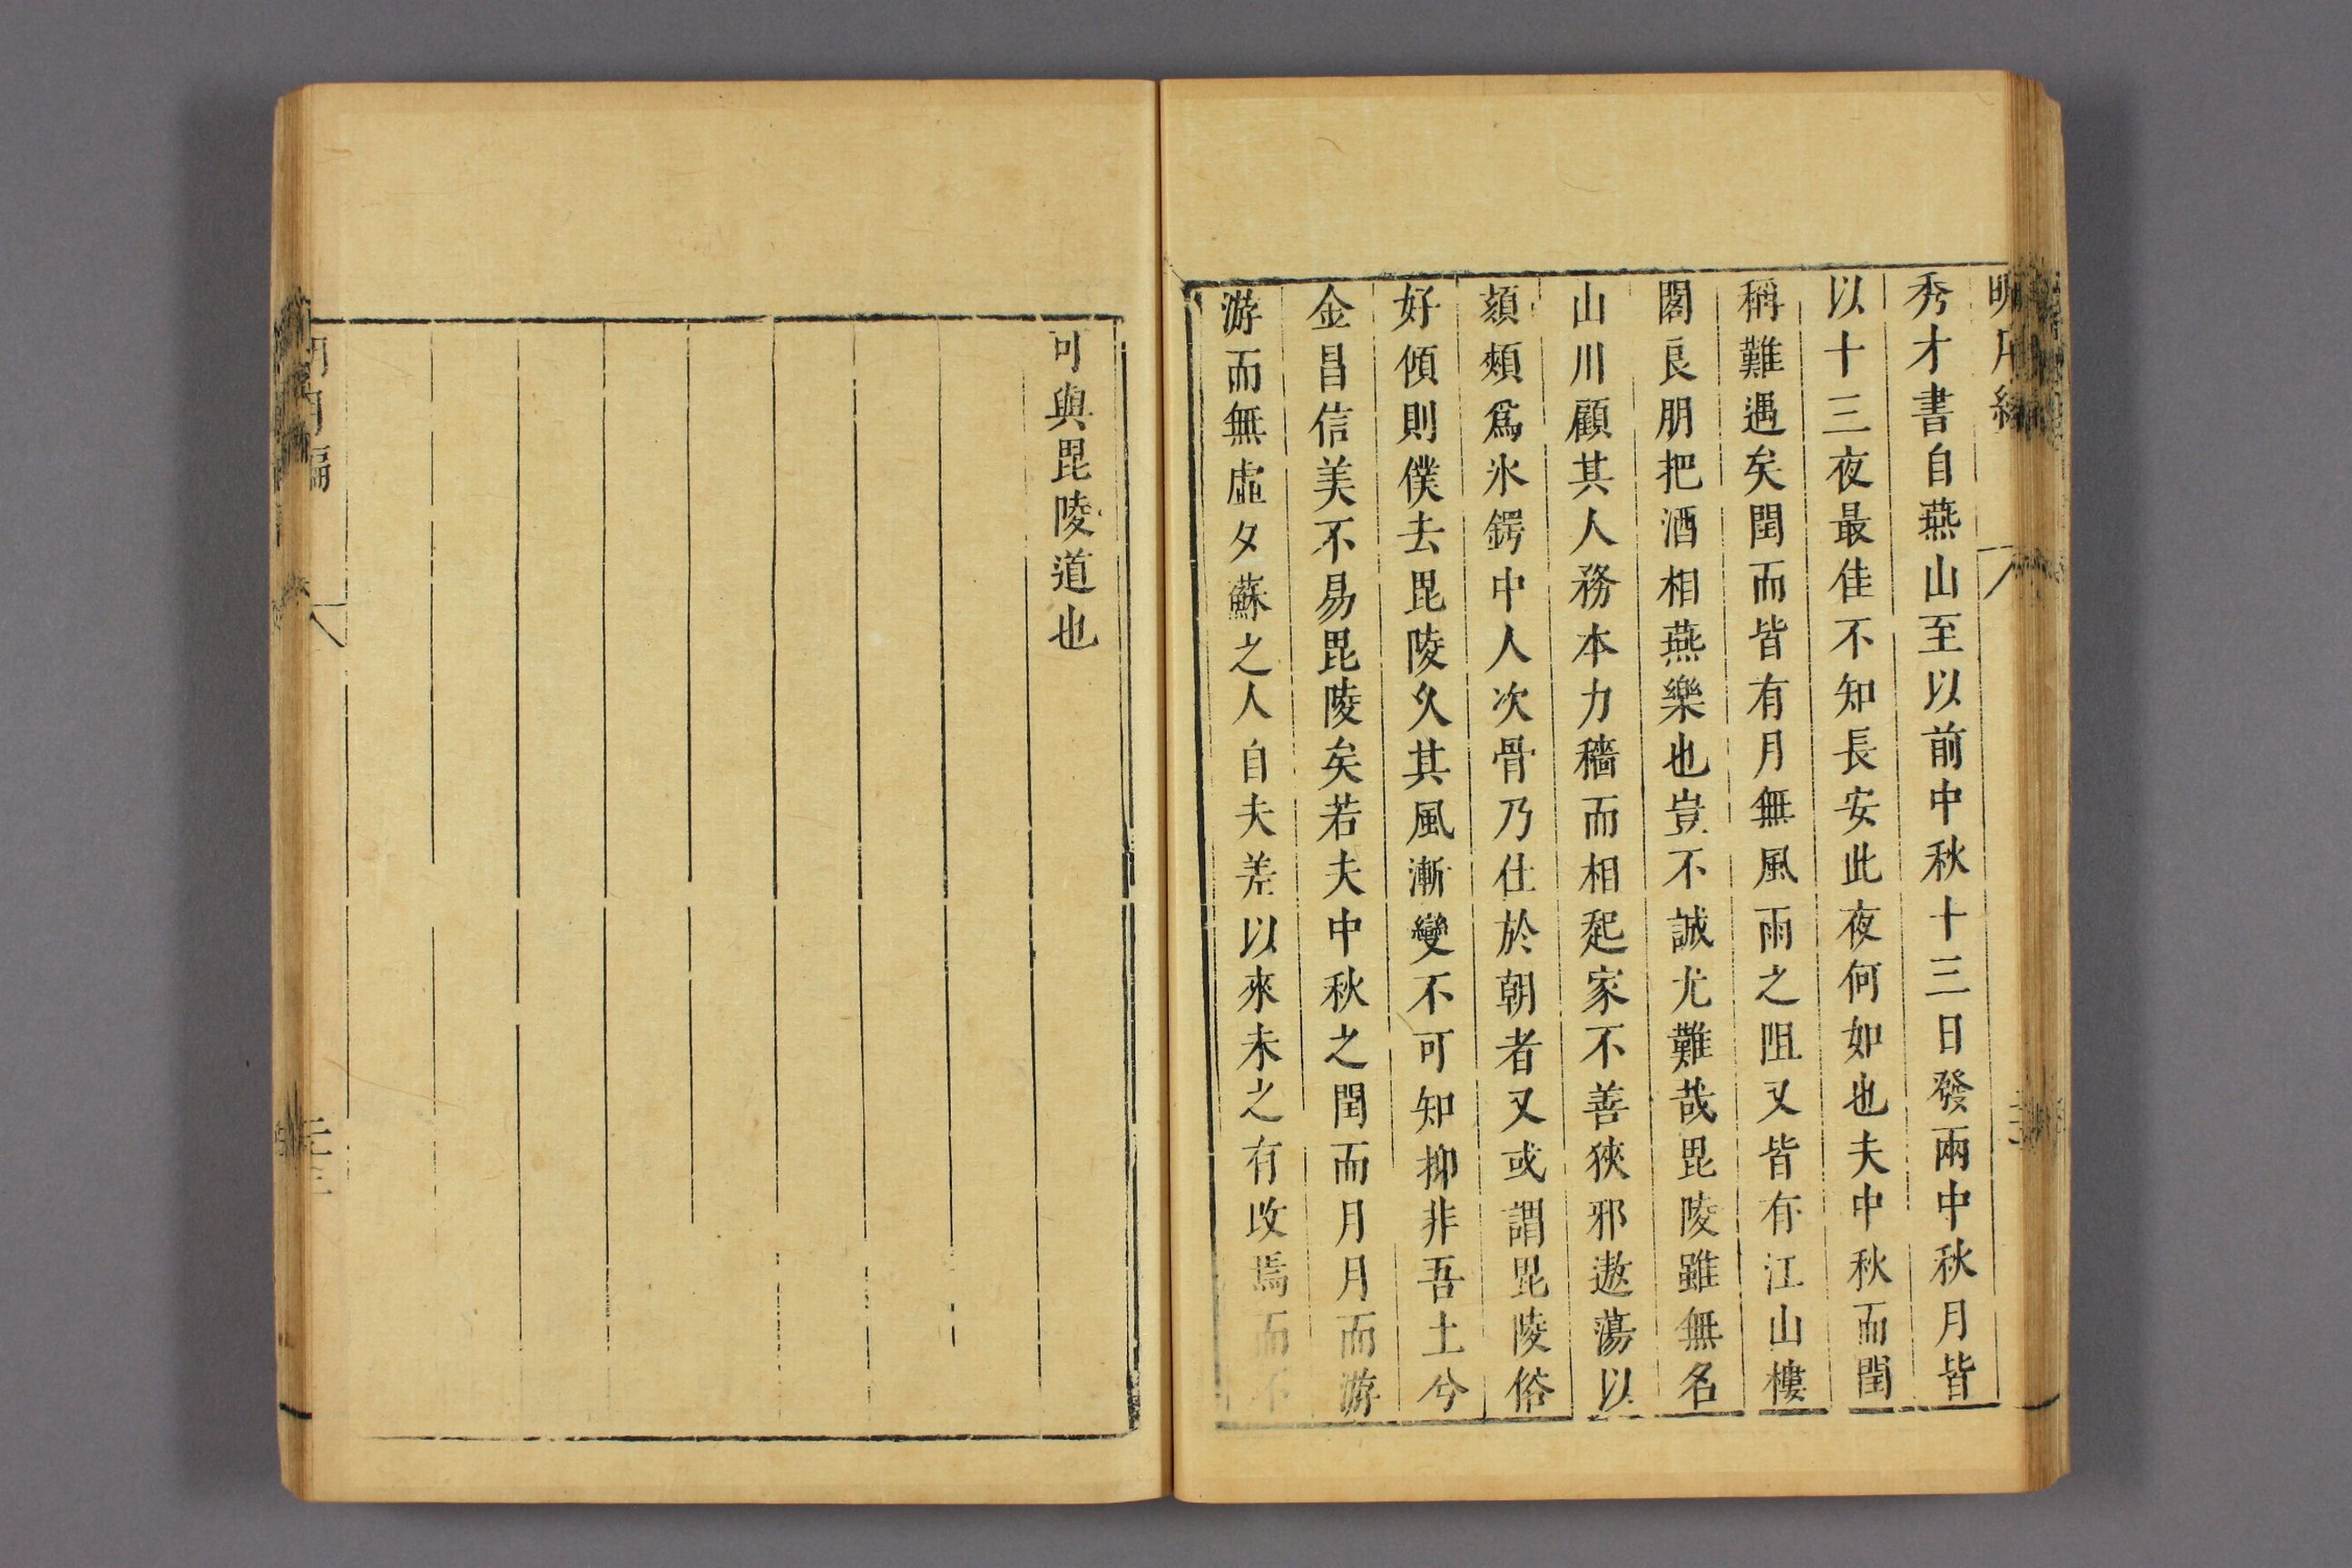 秀才書自燕山至以前中秋十三日發兩中秋月皆
以十三夜最佳不知長安此夜何如也夫中秋而閏
稱難遇矣閏而皆有月無風雨之阻又皆有江山樓
閣良朋把酒相燕樂也豈不誠尤難哉毘陵雖無名
山川顧其人務本力穡而相起家不善狹邪遨蕩以
頦頰爲氷鍔中人次骨乃仕於朝者又或謂毘陵俗
好傾則僕去毘陵久其風漸變不可知抑非吾土兮
金昌信美不易毘陵矣若夫中秋之閏而月月而游
游而無虛夕蘇之人自夫差以來未之有改焉而不
可與毘陵道也